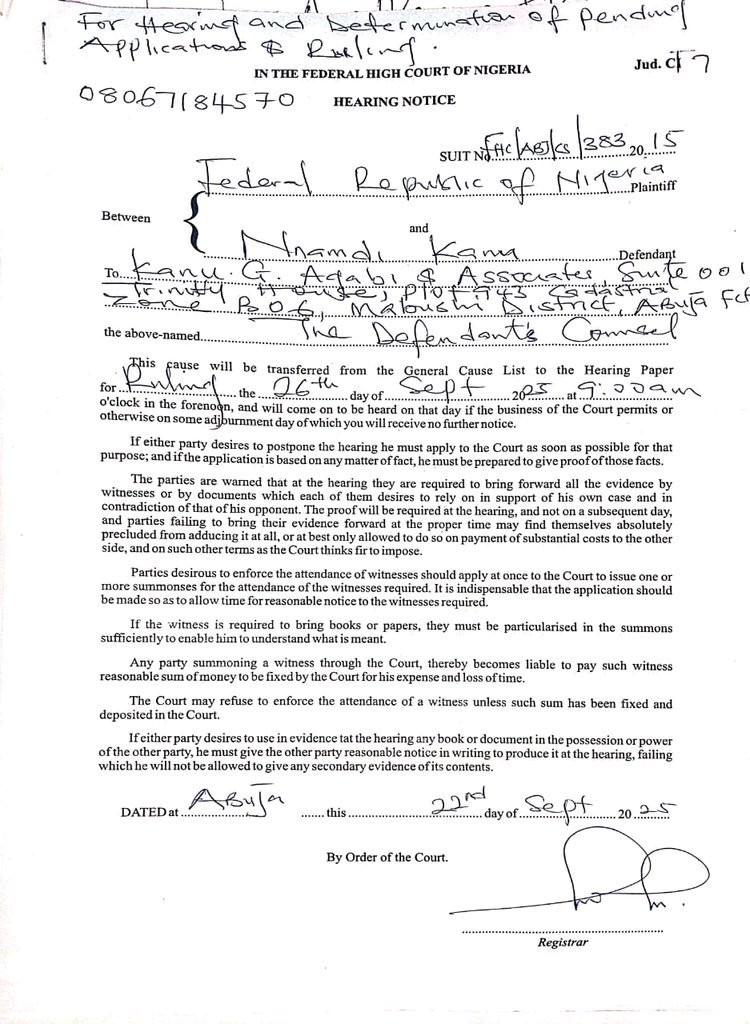 For Hearing and Determination of pending
Applications & Ruling.
IN THE FEDERAL HIGH COURT OF NIGERIA
Jud. CT 7
08067184570
HEARING NOTICE
SUIT No FHC/ABJ/CS/383 20 15
Federal Republic of Nigeria
Plaintiff
Between
and
Nnamdi Kanu Defendant
To Kanu. G. Agabi & Associates, Suite 001
Trinity House, Plot 943 Cadastral
Zone B06, Mabushi District, Abuja FCT
the above-named The Defendant's Counsel
This cause will be transferred from the General Cause List to the Hearing Paper
for Ruling the 26th day of Sept 2025 at 9:00am
o'clock in the forenoon, and will come on to be heard on that day if the business of the Court permits or
otherwise on some adjburnment day of which you will receive no further notice.
If either party desires to postpone the hearing he must apply to the Court as soon as possible for that
purpose; and if the application is based on any matter of fact, he must be prepared to give proof of those facts.
The parties are warned that at the hearing they are required to bring forward all the evidence by
witnesses or by documents which each of them desires to rely on in support of his own case and in
contradiction of that of his opponent. The proof will be required at the hearing, and not on a subsequent day,
and parties failing to bring their evidence forward at the proper time may find themselves absolutely
precluded from adducing it at all, or at best only allowed to do so on payment of substantial costs to the other
side, and on such other terms as the Court thinks fir to impose.
Parties desirous to enforce the attendance of witnesses should apply at once to the Court to issue one or
more summonses for the attendance of the witnesses required. It is indispensable that the application should
be made so as to allow time for reasonable notice to the witnesses required.
If the witness is required to bring books or papers, they must be particularised in the summons
sufficiently to enable him to understand what is meant.
Any party summoning a witness through the Court, thereby becomes liable to pay such witness
reasonable sum of money to be fixed by the Court for his expense and loss of time.
The Court may refuse to enforce the attendance of a witness unless such sum has been fixed and
deposited in the Court.
If either party desires to use in evidence tat the hearing any book or document in the possession or power
of the other party, he must give the other party reasonable notice in writing to produce it at the hearing, failing
which he will not be allowed to give any secondary evidence of its contents.
DATED at Abuja this 22nd day of Sept 20 25
By Order of the Court.
Registrar